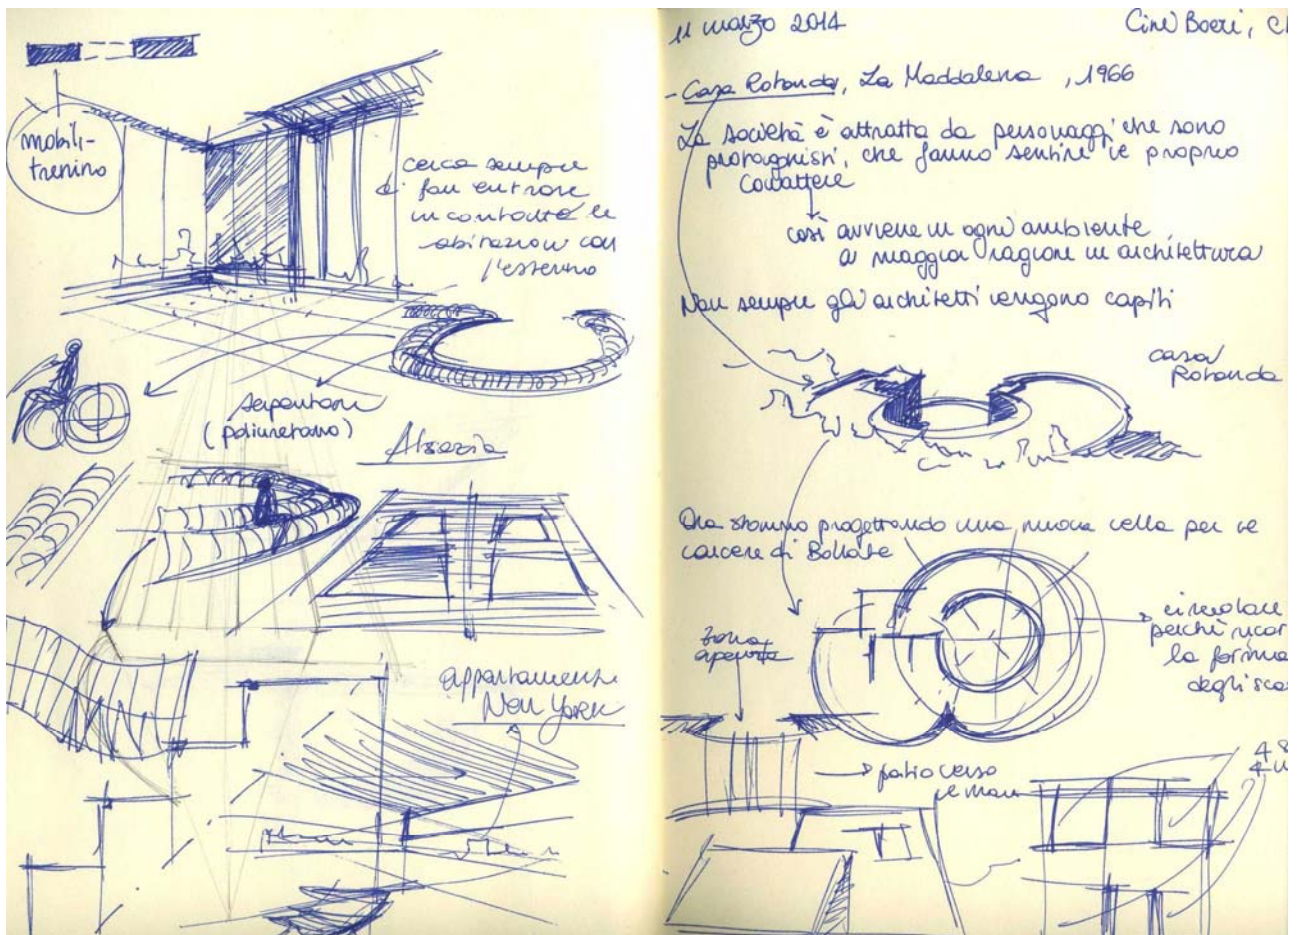 mobili-
trenino
cerca sempre
di far entrare
in contatto le
abitazioni con
l'esterno
serpentone
(poliuretano)
Alsazia
appartamento
New York
11 marzo 2014
Cini Boeri, C
- Casa Rotonda, La Maddalena, 1966
La società è attratta da personaggi che sono
protagnisti, che fanno sentire il proprio
carattere
così avviene in ogni ambiente
a maggior ragione in architettura
Non sempre gli architetti vengono capiti
casa
Rotonda
Ora stanno progettando una nuova cella per il
carcere di Bollate
zona
aperta
circolare
perchè ricor
la forma
degli sco
patio verso
il mare
4